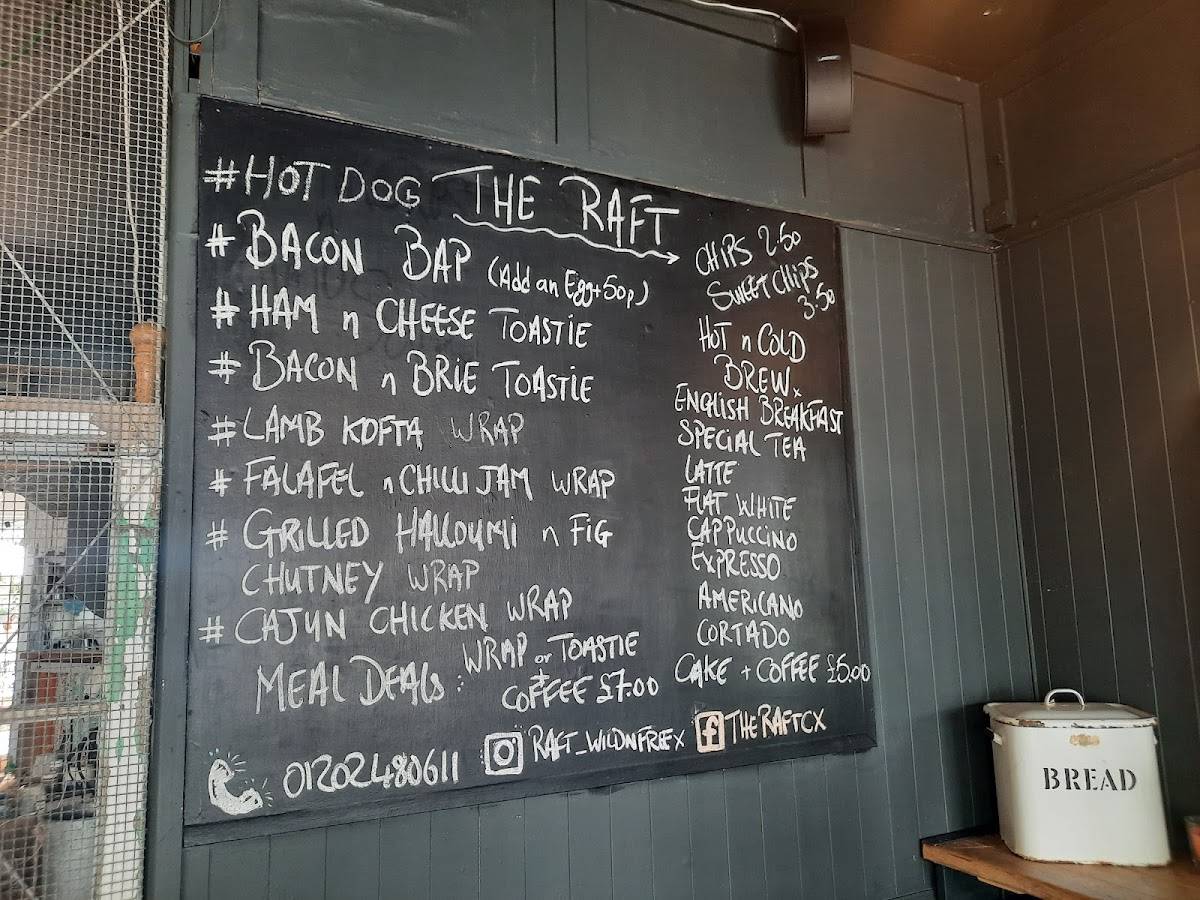 #HOT DOG THE RAFT
#BACON BAP (Add an Egg+50p)
#HAM n CHEESE TOASTIE
#BACON n BRIE TOASTIE
#LAMB KOFTA WRAP
#FALAFEL n CHILLI JAM WRAP
#GRILLED HALLOUMI n FIG
CHUTNEY WRAP
#CAJUN CHICKEN WRAP
MEAL DEALS: WRAP or TOASTIE
+
COFFEE £7.00
CHIPS 2.50
SWEET CHIPS
3.50
HOT n COLD
BREW x
ENGLISH BREAKFAST
SPECIAL TEA
LATTE
FLAT WHITE
CAPPUCCINO
EXPRESSO
AMERICANO
CORTADO
CAKE + COFFEE £5.00
01202480611
RAFT_WILDNFREEX
f THERAFTCX
BREAD